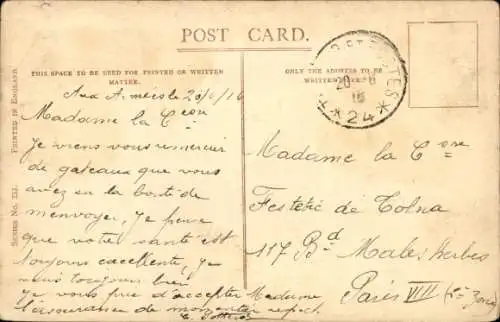 POST CARD.
THIS SPACE TO BE USED FOR PRINTED OR WRITTEN
MATTER.
ONLY THE ADDRESS TO BE
WRITTEN
POSTES
20
16
* 24 *
SERIES No. 133.
PRINTED IN ENGLAND.
Aux A 20/6/16
Madame la Cesse
Je viens vous remercier
de gateaux que vous
avez eu la bonté de
m'envoyer, Je pense
que votre santé est
toujours excellente, je
suis toujours bien
Je vous prie d'accepter Madame
l'assurance de mon
Madame la Csse
Festetic de Tolna
117 Bd Malesherbes
Paris VII